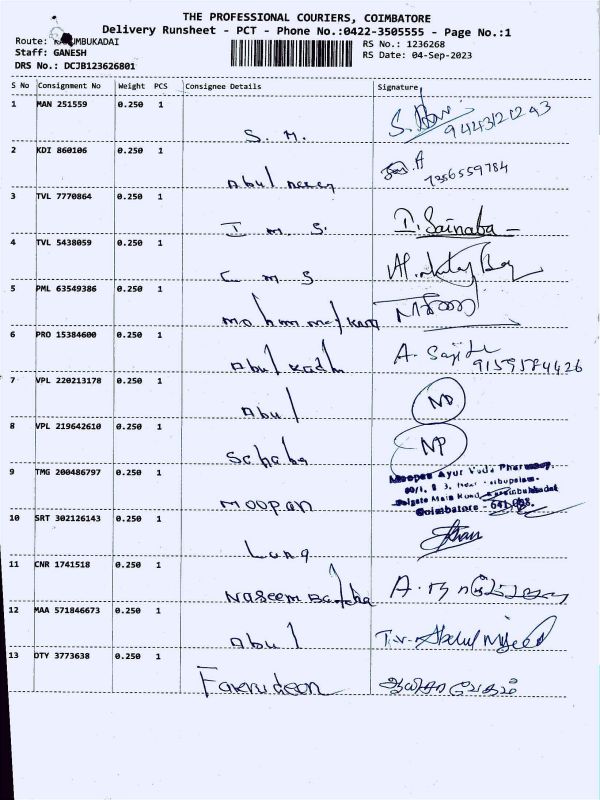 THE PROFESSIONAL COURIERS, COIMBATORE
Delivery Runsheet - PCT - Phone No.:0422-3505555 - Page No.:1
Route: KARUMBUKADAI
Staff: GANESH
DRS No.: DCJB123626801
RS No.: 1236268
RS Date: 04-Sep-2023
S No Consignment No Weight PCS Consignee Details Signature
1 MAN 251559 0.250 1
S. M. 9443121293
2 KDI 860106 0.250 1
Abul 7356559784
3 TVL 7770864 0.250 1
I m S. I. Sainaba
4 TVL 5438059 0.250 1
C m S
5 PML 63549386 0.250 1
6 PRO 15384600 0.250 1
Abul Kadh A. Sajith
9159584426
7 VPL 220213178 0.250 1
Abul ND
8 VPL 219642610 0.250 1
Schaba NP
9 TMG 200486797 0.250 1
MOOPAN Moopan Ayur Vada Pharmacy,
Coimbatore - 641 008.
10 SRT 302126143 0.250 1
Lung
11 CNR 1741518 0.250 1
Naseem
12 MAA 571846673 0.250 1
Abul T.v. Abdul Majeed
13 DTY 3773638 0.250 1
Fakrudeen ஆயிசா பேகம்